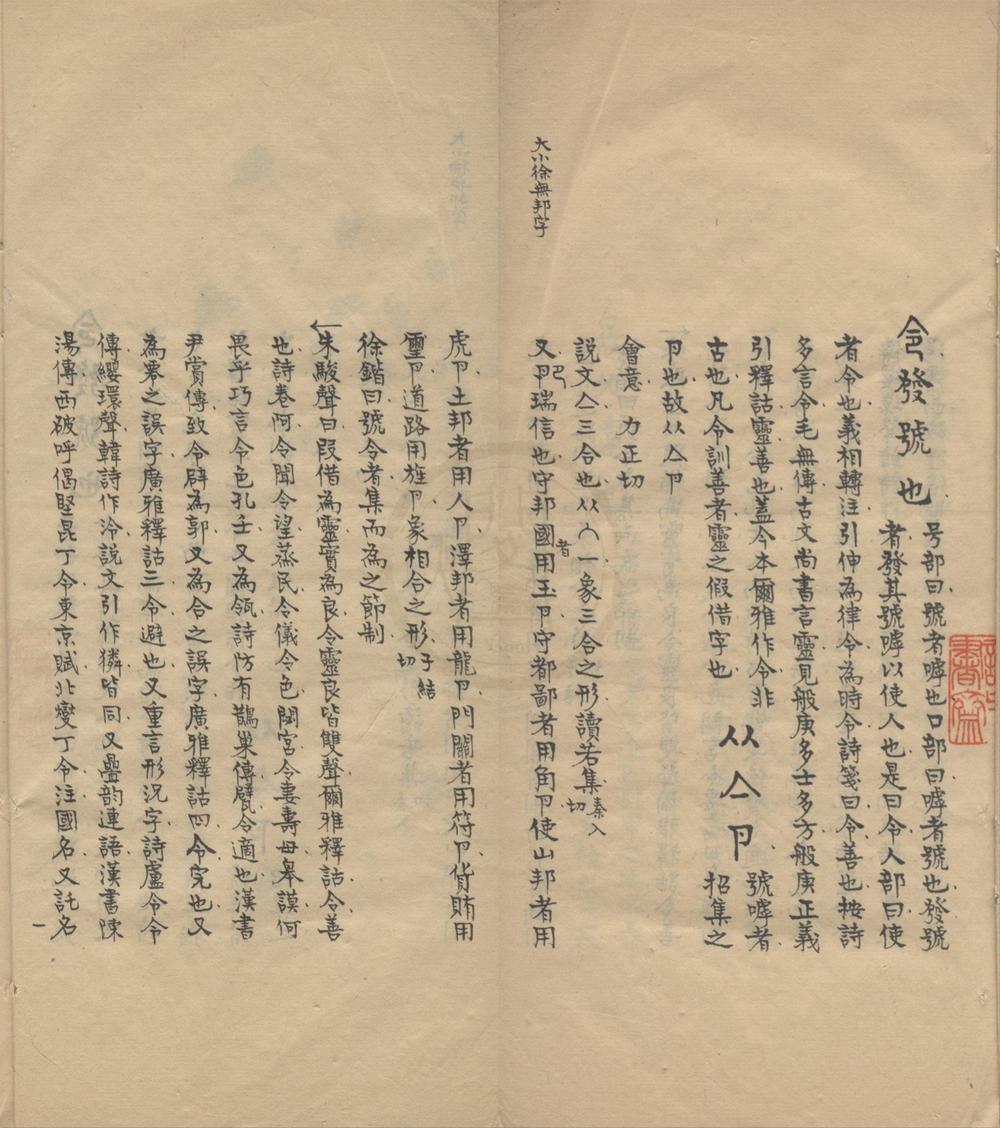 令發號也 号部曰號者嘑也口部曰嘑者號也發號
者發其號嘑以使人也是曰令人部曰使
者令也義相轉注引伸為律令為時令詩箋曰令善也按詩
多言令毛無傳古文尚書言靈見般庚多士多方般庚正義
引釋詁靈善也蓋今本爾雅作令非
古也凡令訓善者靈之假借字也
从亼卪 號嘑者
招集之
卪也故从亼卪
會意曰力正切
說文亼三合也从入一象三合之形讀若集 秦入切
又卪瑞信也守邦國者用玉卪守都鄙者用角卪使山邦者用
大小徐無邦字
虎卪土邦者用人卪澤邦者用龍卪門關者用符卪貨賄用
璽卪道路用旌卪象相合之形 子結切
徐鍇曰號令者集而為之節制
朱駿聲曰叚借為靈實為良令靈良皆雙聲爾雅釋詁令善
也詩卷阿令聞令望蒸民令儀令色閟宮令妻壽母皋謨何
畏乎巧言令色孔壬又為瓴詩防有鵲巢傳甓令適也漢書
尹賞傳致令辟為郭又為合之誤字廣雅釋詁四令完也又
為零之誤字廣雅釋詁三令避也又重言形況字詩盧令令
傳纓環聲韓詩作泠說文引作獜皆同又疊韵連語漢書陳
湯傳西破呼偈堅昆丁令東京賦北燮丁令注國名又託名
一